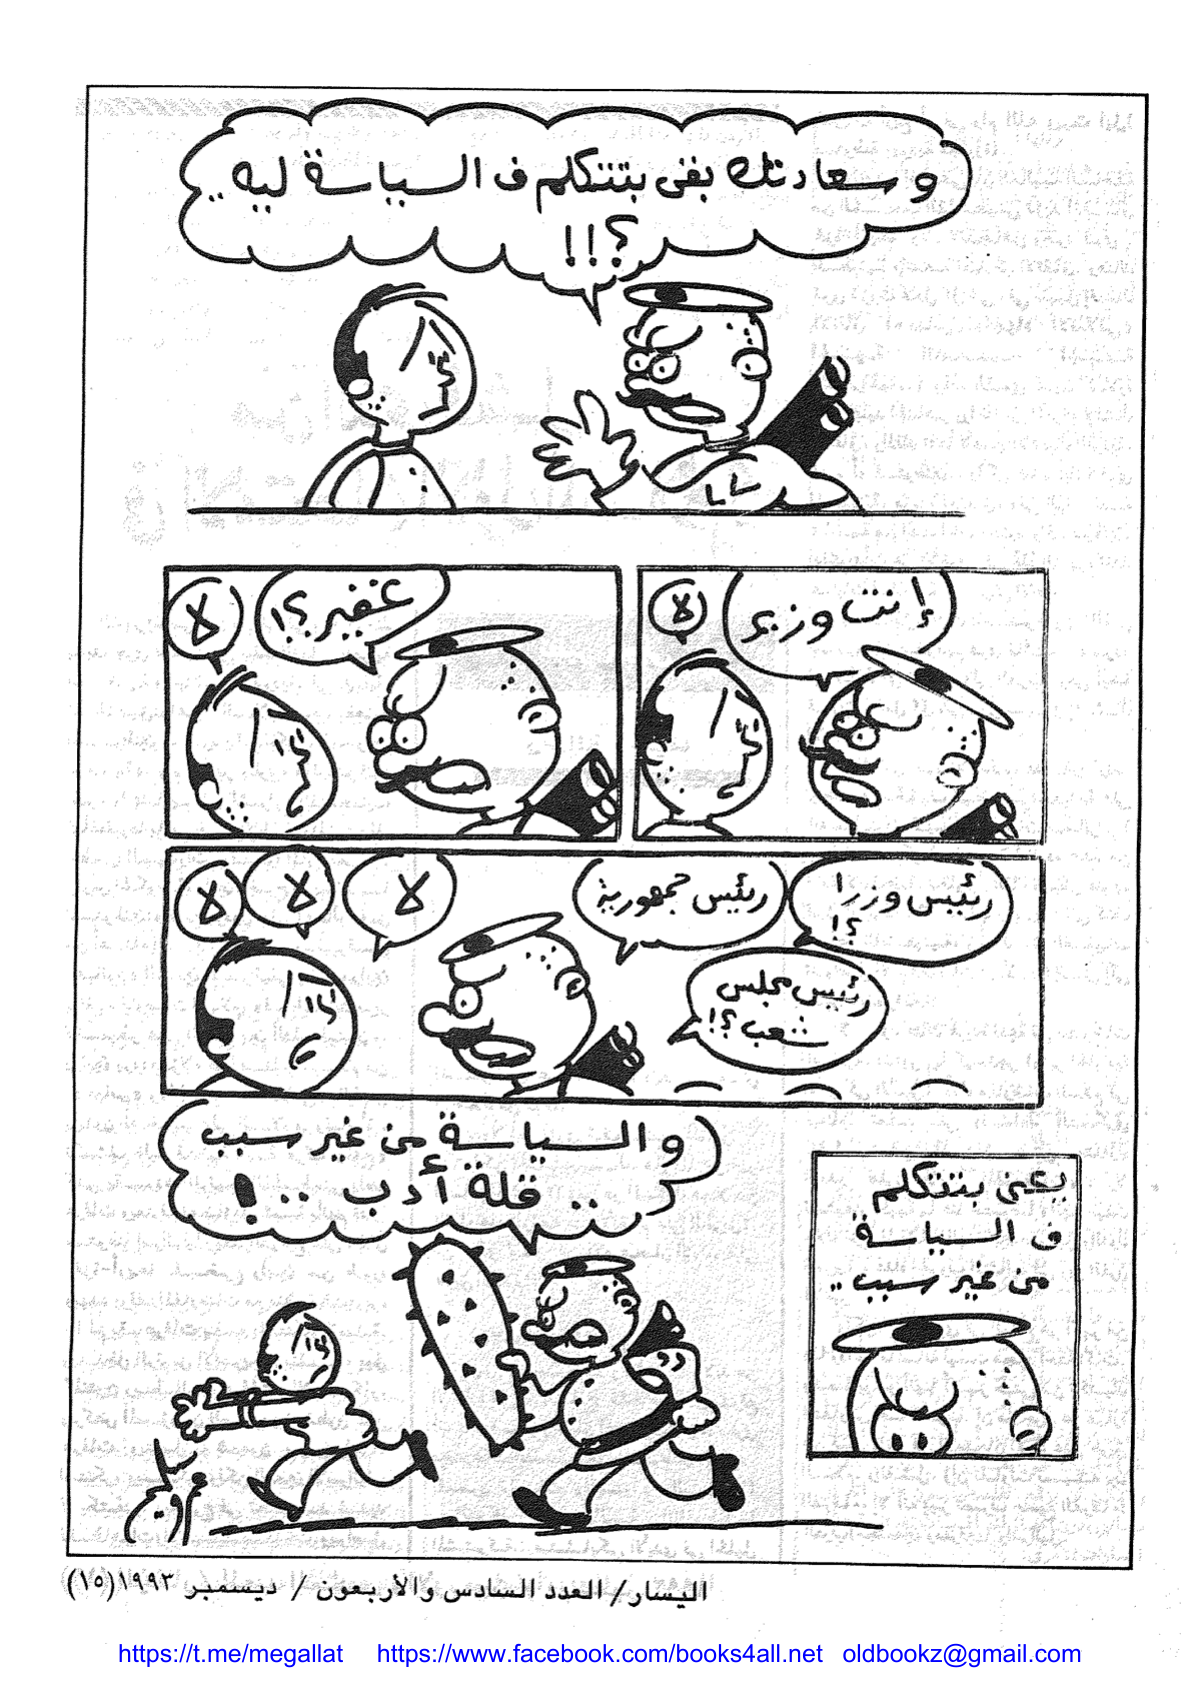 وسعادتك بقى بتتكلم ف السياسة ليه ..
؟!!
إنت وزير
لا
غفير؟!
لا
رئيس وزرا
؟!
رئيس جمهورية
رئيس مجلس
شعب ؟!
لا
لا
لا
يعنى بتتكلم
ف السياسة
من غير سبب ..
والسياسة من غير سبب
.. قلة أدب .. !
اليسار/ العدد السادس والأربعون / ديسمبر ١٩٩٣(١٥)
https://t.me/megallat https://www.facebook.com/books4all.net oldbookz@gmail.com